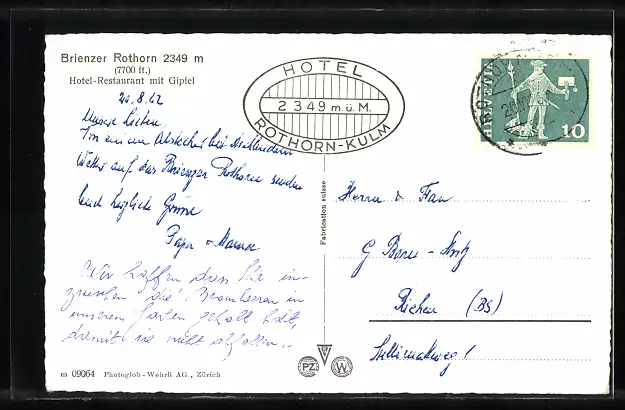 Brienzer Rothorn 2349 m
(7700 ft.)
Hotel-Restaurant mit Gipfel
HOTEL
2349 m.ü.M.
ROTHORN-KULM
HELVETIA
10
20.8.62
Unsere Lieben
Von einem Abstecher bei
Wetter auf das Brienzer Rothorn senden
Euch herzliche Grüsse
Papa + Mama
Wir hoffen dass Sie in-
zwischen die Brombeeren in
unserem Garten
damit sie nicht abfallen.
Fabrication suisse
Herrn & Frau
G
Riehen (BS)
1
PZ
W
m 09064 Photoglob-Wehrli AG., Zürich